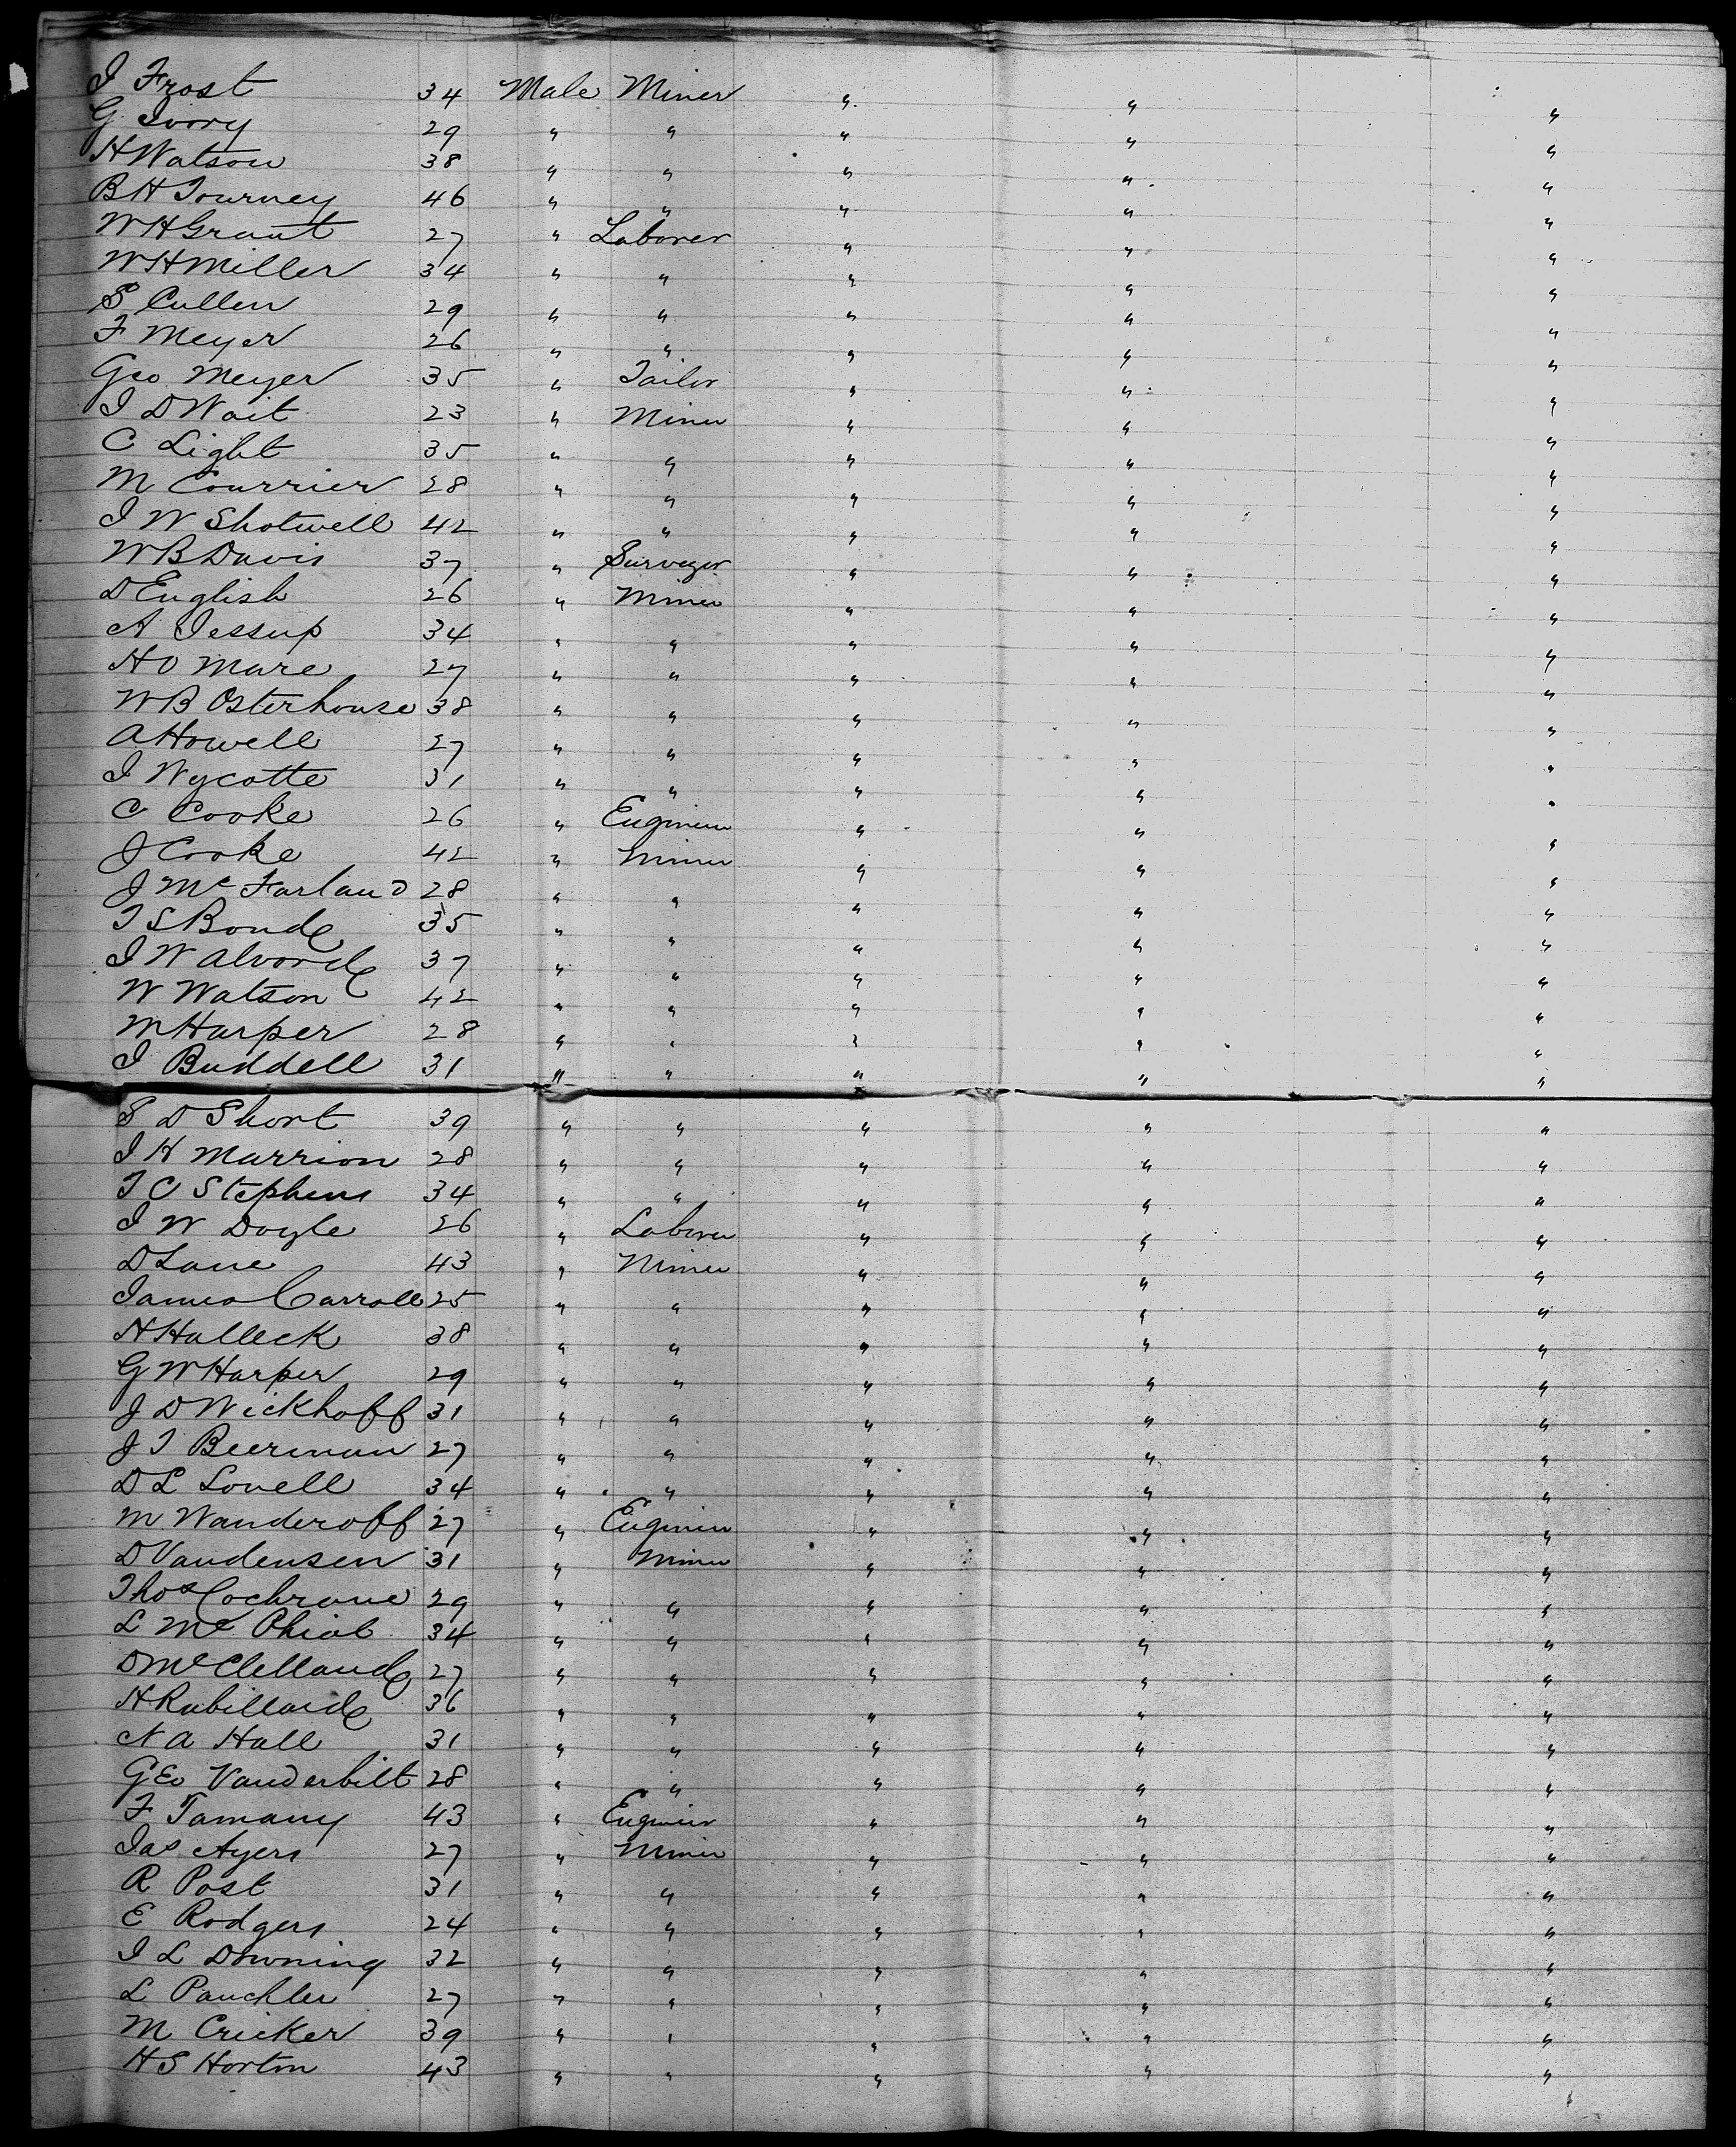 J Frost 34 Male Miner " " "
G Ivory 29 " " " " "
H Watson 38 " " " " "
B H Tourney 46 " " " " "
W H Grant 27 " Laborer " " "
W H Miller 34 " " " " "
S Cullen 29 " " " " "
F Meyer 26 " " " " "
Geo Meyer 35 " Tailor " " "
J D Wait 23 " Miner " " "
C Light 35 " " " " "
M Courrier 28 " " " " "
J W Shotwell 42 " " " " "
W B Davis 37 " Surveyor " " "
D English 26 " Miner " " "
A Jessup 34 " " " " "
H O Mare 27 " " " " "
W B Osterhouse 38 " " " " "
A Howell 27 " " " " "
J Wycotte 31 " " " " "
C Cooke 26 " Engineer " " "
J Cooke 42 " Miner " " "
J Mc Farland 28 " " " " "
T S Bond 35 " " " " "
J W Alvord 37 " " " " "
W Watson 42 " " " " "
M Harper 28 " " " " "
J Buddell 31 " " " " "
S D Short 39 " " " " "
J H Marrion 28 " " " " "
T C Stephens 34 " " " " "
J W Doyle 26 " Laborer " " "
D Lane 43 " Miner " " "
James Carroll 25 " " " " "
H Halleck 38 " " " " "
G W Harper 29 " " " " "
J D Wickhoff 31 " " " " "
J T Beerman 27 " " " " "
D L Lovell 34 " " " " "
M Wanderoff 27 " Engineer " " "
D Vandensen 31 " Miner " " "
Thos Cochrane 29 " " " " "
L Mc 34 " " " " "
D McClelland 27 " " " " "
H Rabillard 36 " " " " "
N A Hall 31 " " " " "
Geo Vanderbilt 28 " " " " "
F Tamany 43 " Engineer " " "
Jas Ayers 27 " Miner " " "
R Post 31 " " " " "
E Rodgers 24 " " " " "
J L Downing 32 " " " " "
L Pauchler 27 " " " " "
M Cricker 39 " " " " "
H S Horton 43 " " " " "